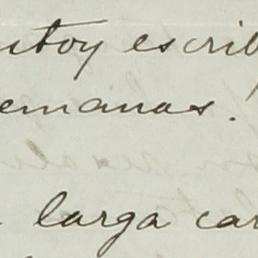 stoy escrib
emanas!
larga car